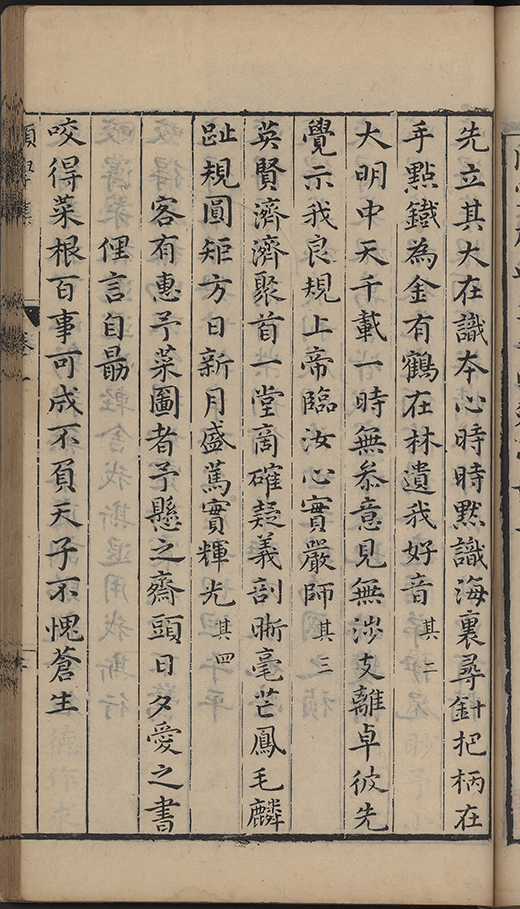 先立其大在識本心時時默識海裏尋針把柄在
手點鐵為金有鶴在林遺我好音其二
大明中天千載一時無叅意見無涉支離卓彼先
覺示我良規上帝臨汝心實嚴師其三
英賢濟濟聚首一堂商確疑義剖晰毫芒鳳毛麟
趾規圓矩方日新月盛篤實輝光其四
客有惠予菜圖者予懸之齋頭日夕愛之書
俚言自勗
咬得菜根百事可成不負天子不愧蒼生